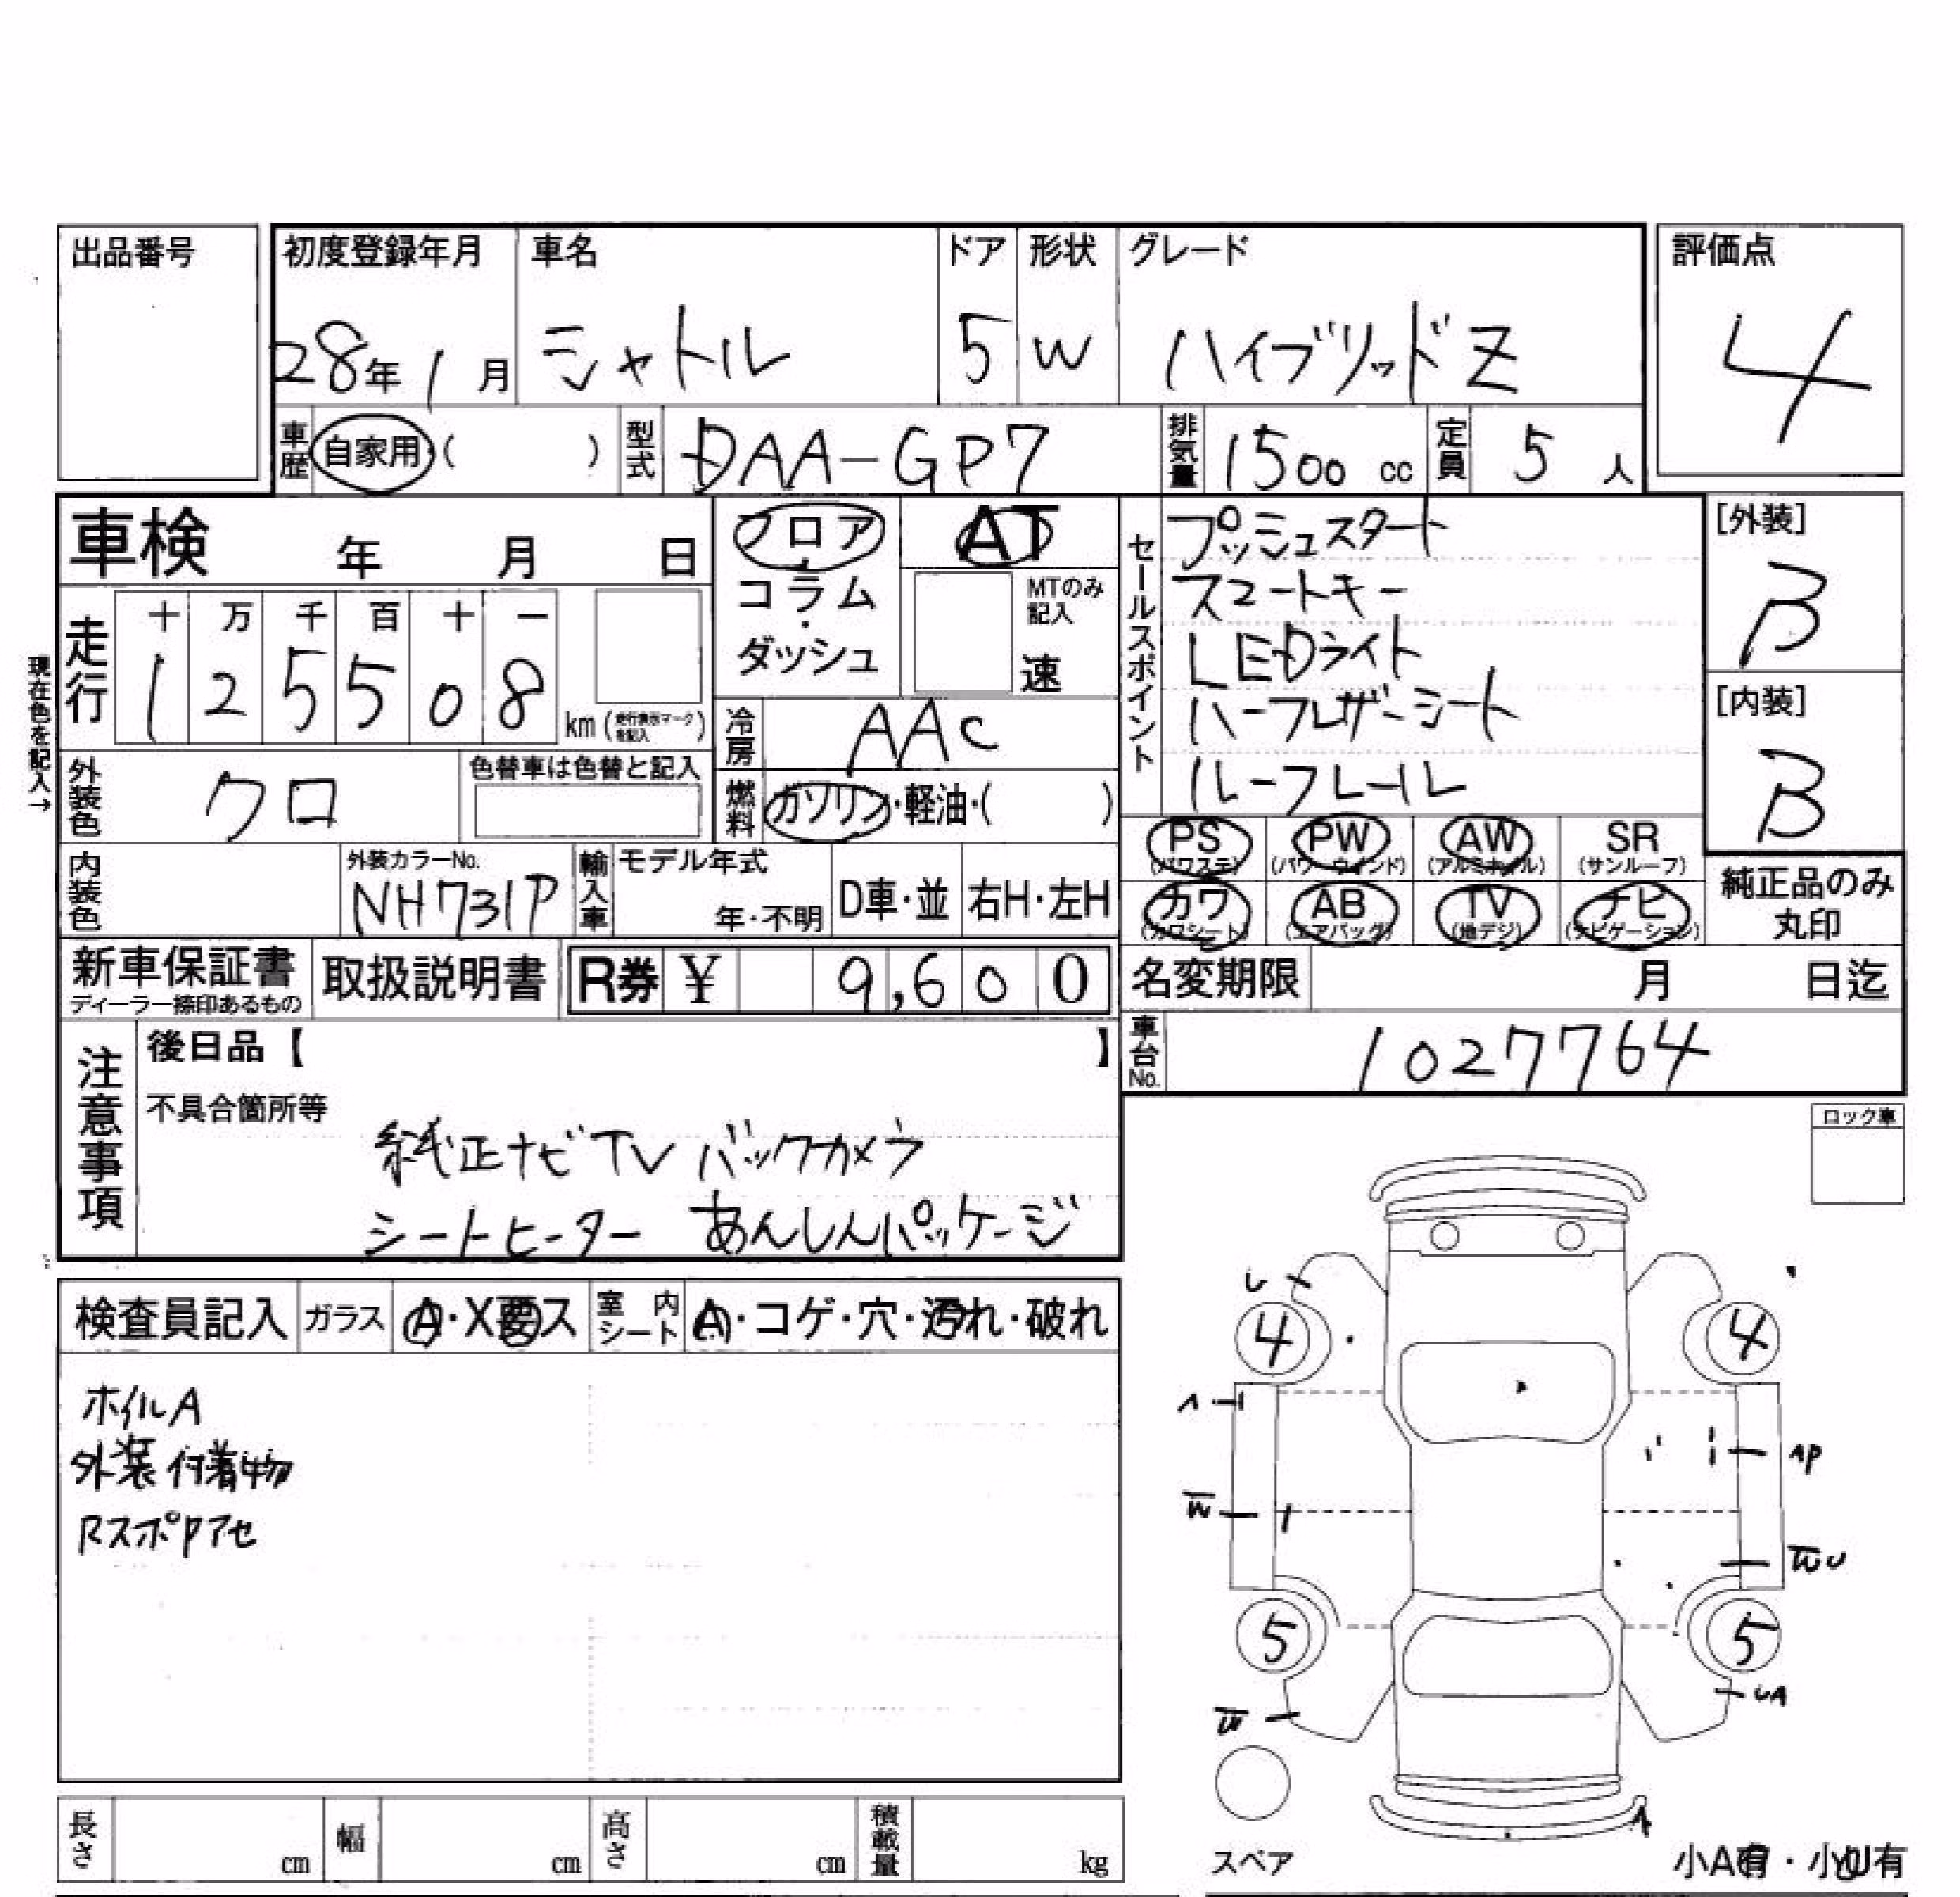 出品番号
初度登録年月 車名 ドア 形状 グレード 評価点
28年 1月 シャトル 5 W ハイブリッドZ 4
車歴 自家用 ( ) 型式 DAA-GP7 排気量 1500 cc 定員 5 人
車検 年 月 日
フロア・コラム・ダッシュ
AT
MTのみ記入
速
セールスポイント
プッシュスタート
スマートキー
LEDライト
ハーフレザーシート
ルーフレール
[外装]
B
[内装]
B
現在色を記入→
走行 十 万 千 百 十 一
1 2 5 5 0 8
km (走行表示マークを記入)
冷房 AAC
外装色 クロ 色替車は色替と記入
燃料 ガソリン・軽油・( )
PS (パワステ) PW (パワーウインド) AW (アルミホイル) SR (サンルーフ)
カワ (カワシート) AB (エアバッグ) TV (地デジ) ナビ (ナビゲーション)
純正品のみ
丸印
内装色 外装カラーNo. NH731P 輸入車 モデル年式 年・不明 D車・並 右H・左H
新車保証書 ディーラー捺印あるもの 取扱説明書 R券 ¥ 9,600
名変期限 月 日迄
車台No. 1027764
注意事項
後日品【 】
不具合箇所等
純正ナビTV バックカメラ
シートヒーター あんしんパッケージ
ロック車
検査員記入 ガラス A・X要ス 室内シート A・コゲ・穴・汚れ・破れ
ホイルA
外装付着物
RスポPアセ
U
4 4
A
AP
W
WU
5 5
UA
W
A
スペア
小A有・小U有
長さ cm 幅 cm 高さ cm 積載量 kg